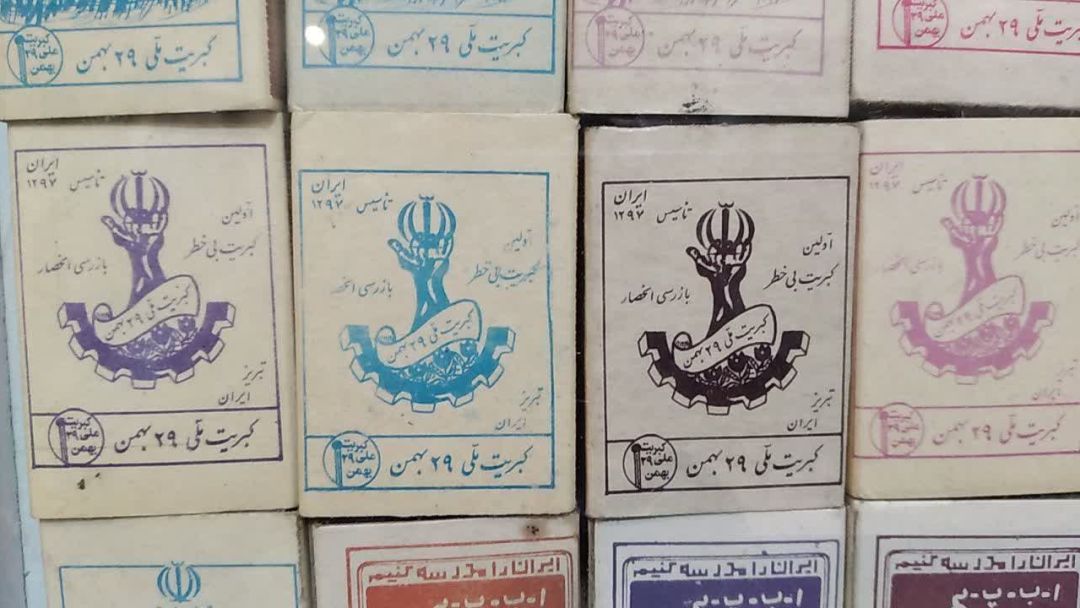 کبریت ملی ۲۹ بهمن
کبریت ملی ۲۹ بهمن
کبریت ملی ۲۹ بهمن
کبریت ملی ۲۹ بهمن
کبریت ملی ۲۹ بهمن
کبریت ملی ۲۹ بهمن
کبریت ملی
ایران
تأسیس ۱۲۹۷
اولین
کبریت بی خطر
بازرسی انحصار
کبریت ملی ۲۹ بهمن
تبریز
ایران
کبریت ملی ۲۹ بهمن
کبریت ملی ۲۹ بهمن
ایران
تأسیس ۱۲۹۷
اولین
کبریت بی خطر
بازرسی انحصار
کبریت ملی ۲۹ بهمن
تبریز
ایران
کبریت ملی ۲۹ بهمن
کبریت ملی ۲۹ بهمن
ایران
تأسیس ۱۲۹۷
اولین
کبریت بی خطر
بازرسی انحصار
کبریت ملی ۲۹ بهمن
تبریز
ایران
کبریت ملی ۲۹ بهمن
کبریت ملی ۲۹ بهمن
ایران
تأسیس ۱۲۹۷
اولین
کبریت بی خطر
بازرسی انحصار
کبریت ملی ۲۹ بهمن
تبریز
ایران
کبریت ملی ۲۹ بهمن
کبریت ملی ۲۹ بهمن
ایران را مدرسه کنیم
ا-ب-پ-
ایران را مدرسه کنیم
ا-ب-پ-
ایران را مدرسه کنیم
ا-ب-پ-